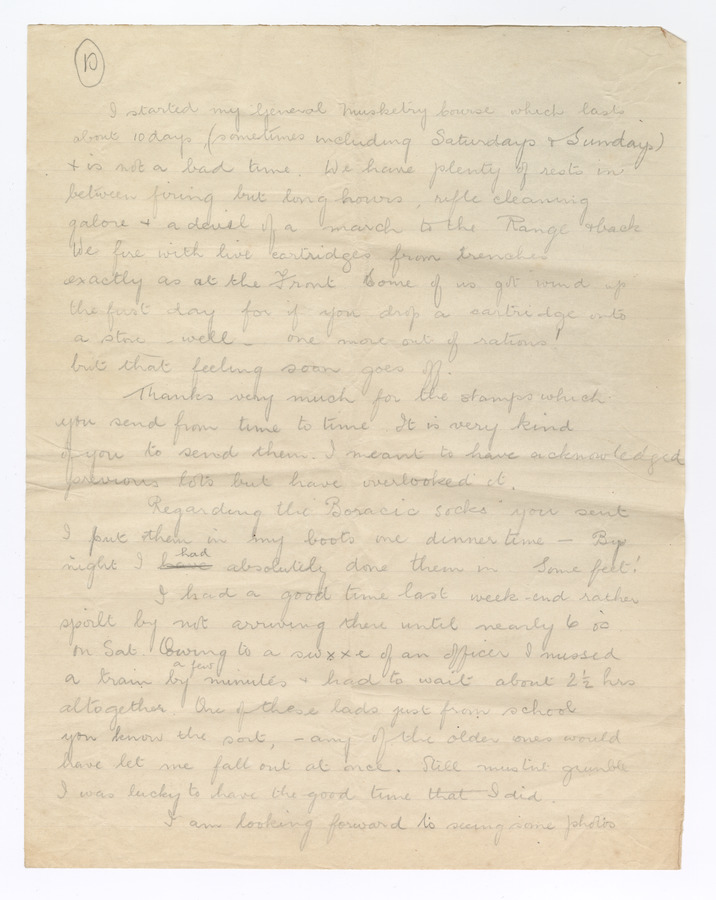 10
I started my General Musketry Course which lasts
about 10 days, (sometimes including Saturdays & Sundays)
& is not a bad time. We have plenty of rests in
between firing but long hours, rifle cleaning
galore & a devil of a march to the Range & back
We fire with live cartridges from trenches
exactly as at the Front Some of us got wind up
the first day for if you drop a cartridge onto
a stone - well - one more out of rations!
but that feeling soon goes off.
Thanks very much for the stamps which
you send from time to time. It is very kind
of you to send them. I meant to have acknowledged
previous lots but have overlooked it.
Regarding the "Boracic socks" you sent
I put them in my boots one dinner time - By
night I have had absolutely done them in Some feet!
I had a good time last week-end rather
spoilt by not arriving there until nearly 6 oo
on Sat. Owing to a swxxe of an officer I missed
a train by a few minutes & had to wait about 2½ hrs
altogether. One of these lads just from school
you know the sort, - any of the older ones would
have let me fall out at once. Still mustnt grumble
I was lucky to have the good time that I did.
I am looking forward to seeing some photos